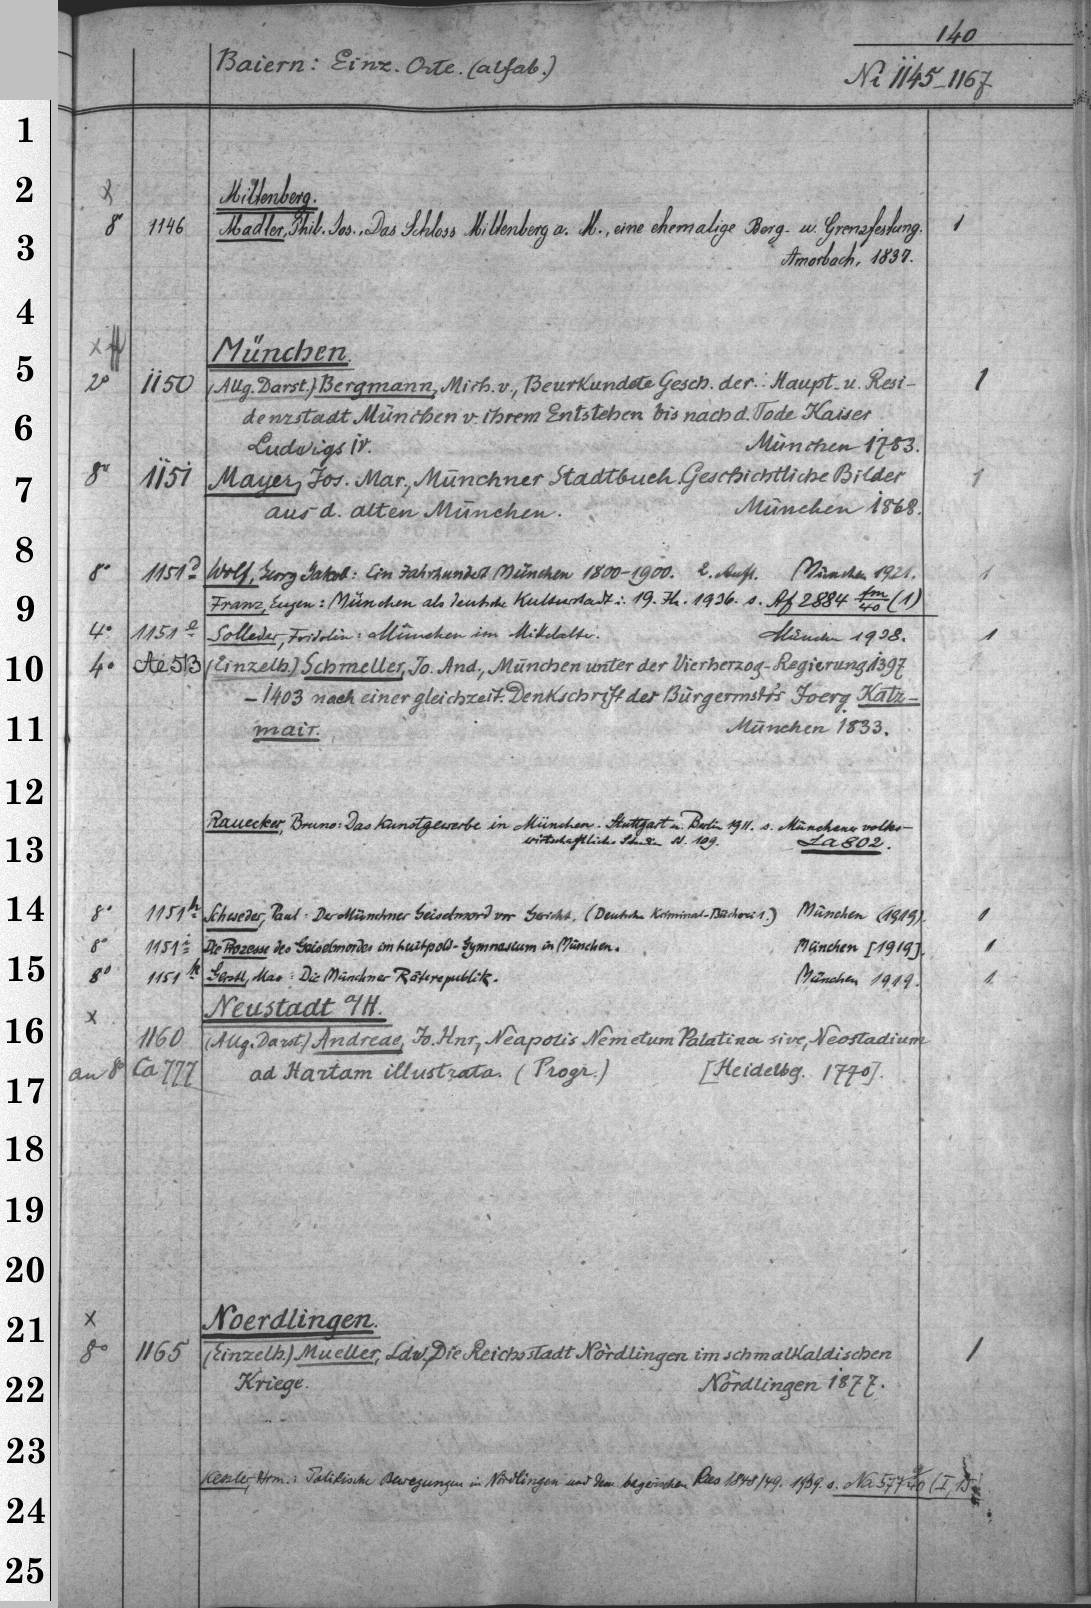 140
Baiern: Einz. Orte. (alfab.)
Ni 1145-1167
1
2
3
4
5
6
7
8
9
10
11
12
13
14
15
16
17
18
19
20
21
22
23
24
25
x Miltenberg.
8° 1146 Madler, Phil. Jos., Das Schloss Miltenberg a. M., eine ehemalige Berg- u. Grenzfestung. 1
Amorbach, 1837.
x München.
2° 1150 (Allg. Darst.) Bergmann, Mich. v., Beurkundete Gesch. der Haupt- u. Resi- 1
denzstadt München v. ihrem Entstehen bis nach d. Tode Kaiser
Ludwigs IV. München 1783.
8° 1151 Mayer, Jos. Mar., Münchner Stadtbuch. Geschichtliche Bilder 1
aus d. alten München. München 1868.
8° 1151 d Wolf, Georg Jakob: Ein Jahrhundert München 1800-1900. 2. Aufl. München 1921. 1
Franz, Eugen: München als deutsche Kulturstadt i. 19. Jh. 1936. s. Af 2884 fm/40 (1)
4° 1151 e Solleder, Fridolin: München im Mittelalter. München 1938. 1
4° Ae 513 (Einzelh.) Schmeller, Jo. And., München unter der Vierherzog-Regierung 1397
- 1403 nach einer gleichzeit. Denkschrift des Bürgermstr's Joerg Katz-
mair. München 1833.
Rauecker, Bruno: Das Kunstgewerbe in München. Stuttgart u. Berlin 1911. s. Münchener volks-
wirtschaftliche Studien St. 109. La 802.
8° 1151 h Schweder, Paul: Der Münchner Geiselmord vor Gericht. (Deutsche Kriminal-Bücherei 1.) München (1919). 1
8° 1151 i Die Prozesse des Geiselmordes im Luitpold-Gymnasium in München. München [1919]. 1
8° 1151 k Gerstl, Max: Die Münchner Räterepublik. München 1919. 1
x Neustadt a/H.
1160 (Allg. Darst.) Andreae, Jo. Hnr., Neapolis Nemetum Palatina sive, Neostadium
an 8° Ca 777 ad Hartam illustrata. (Progr.) [Heidelbg. 1770].
x Noerdlingen.
8° 1165 (Einzelh.) Mueller, Ldw., Die Reichsstadt Nördlingen im schmalkaldischen 1
Kriege. Nördlingen 1877.
Kessler, Hrm.: Politische Bewegungen in Nördlingen und dem bayerischen Ries 1848/49. 1939. s. Na 577